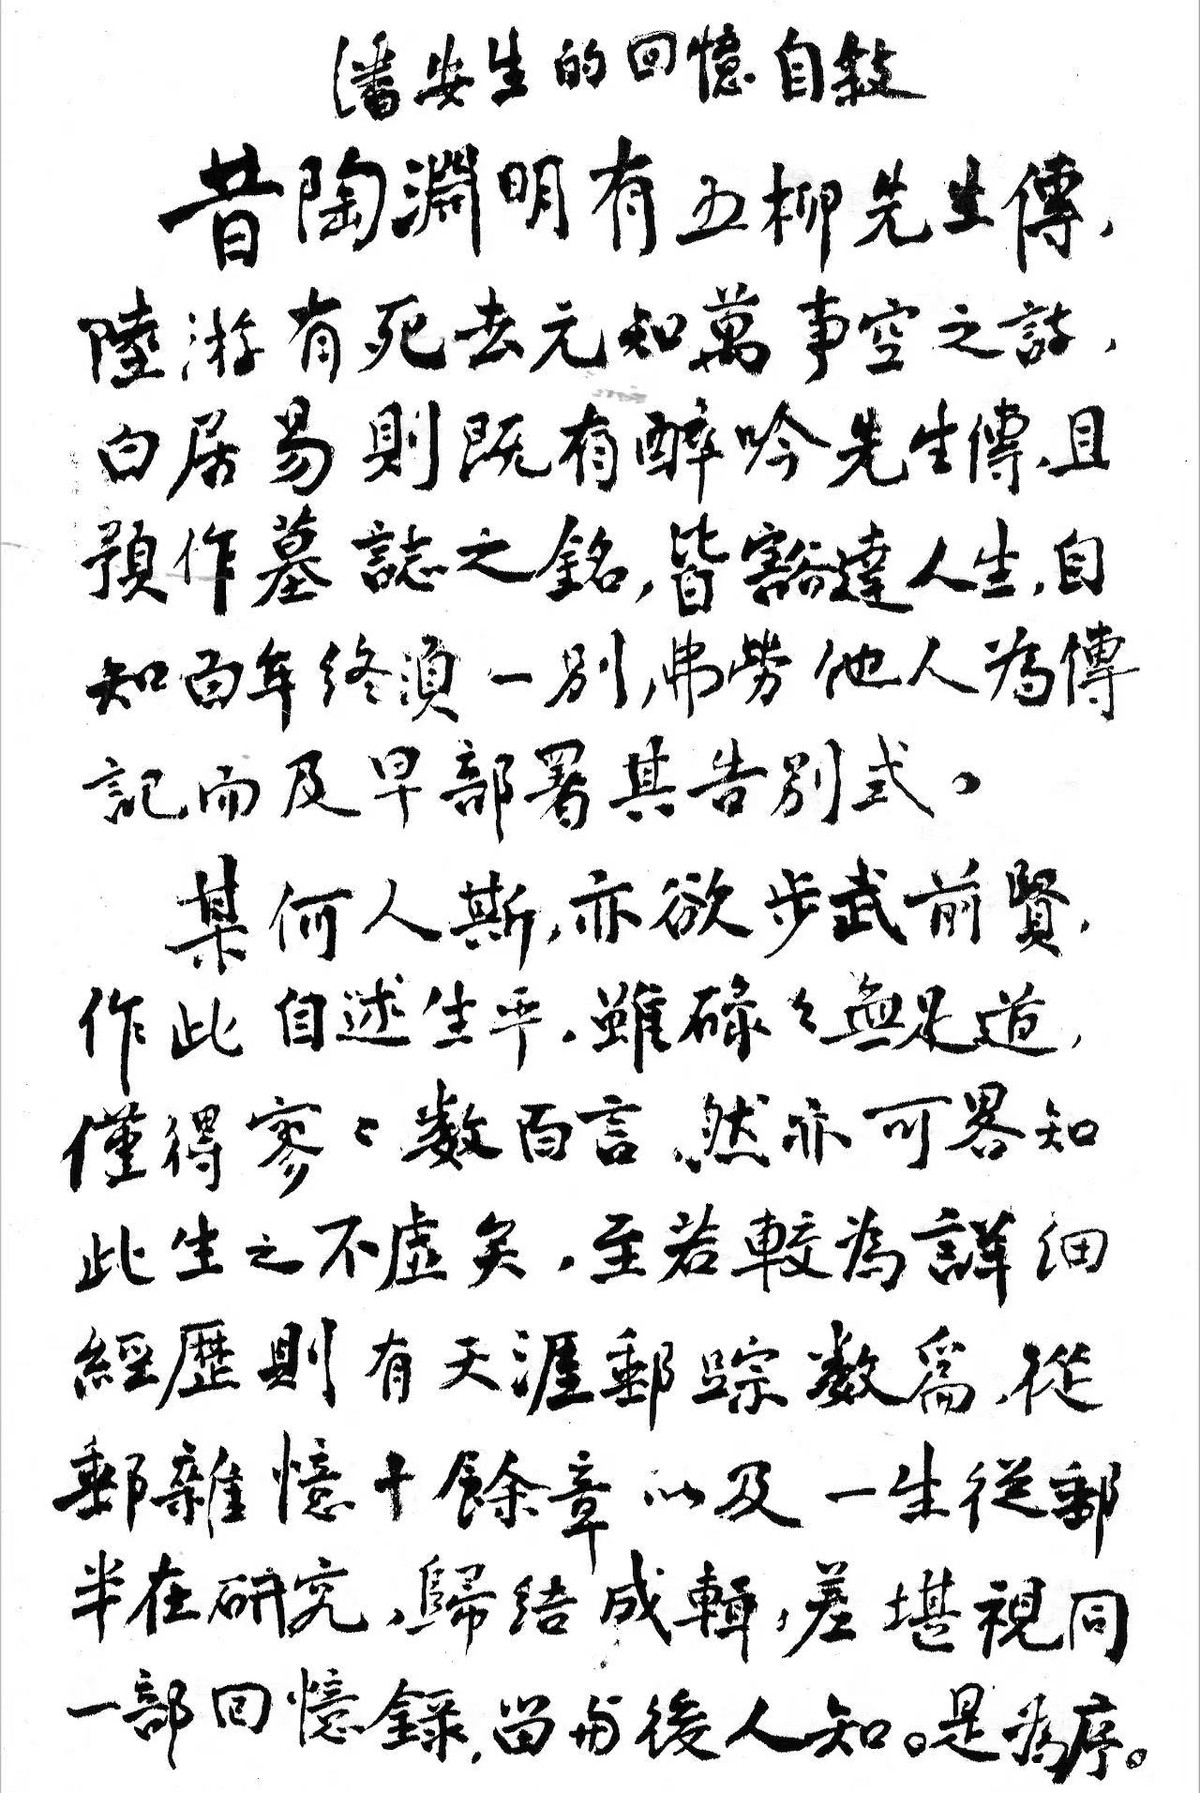 潘安生的回憶自敍
昔陶淵明有五柳先生傳，
陸游有死去元知萬事空之詩，
白居易則既有醉吟先生傳，且
預作墓誌之銘，皆豁達人生，自
知百年終須一別，弗勞他人為傳
記而及早部署其告別式。
某何人斯，亦欲步武前賢，
作此自述生平。雖碌々無足道，
僅得寥々數百言，然亦可畧知
此生之不虛矣。至若較為詳細
經歷則有天涯郵踪數篇，從
郵雜憶十餘章以及一生從郵
半在研究，歸結成輯，差堪視同
一部回憶錄，留與後人知。是為序。